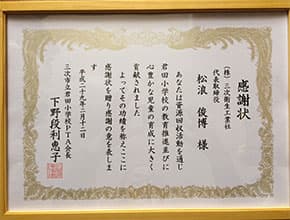 感謝状
(株)三次衛生工業社
代表取締役
松浪 俊博 様
あなたは資源回収活動を通じ
君田小学校の教育推進並びに
心豊かな児童の育成に大きく
貢献されました
よってその功績を称えここに
感謝状を贈り感謝の意を表しま
す
平成二十九年二月十二日
三次市立君田小学校PTA会長
下野段利恵子